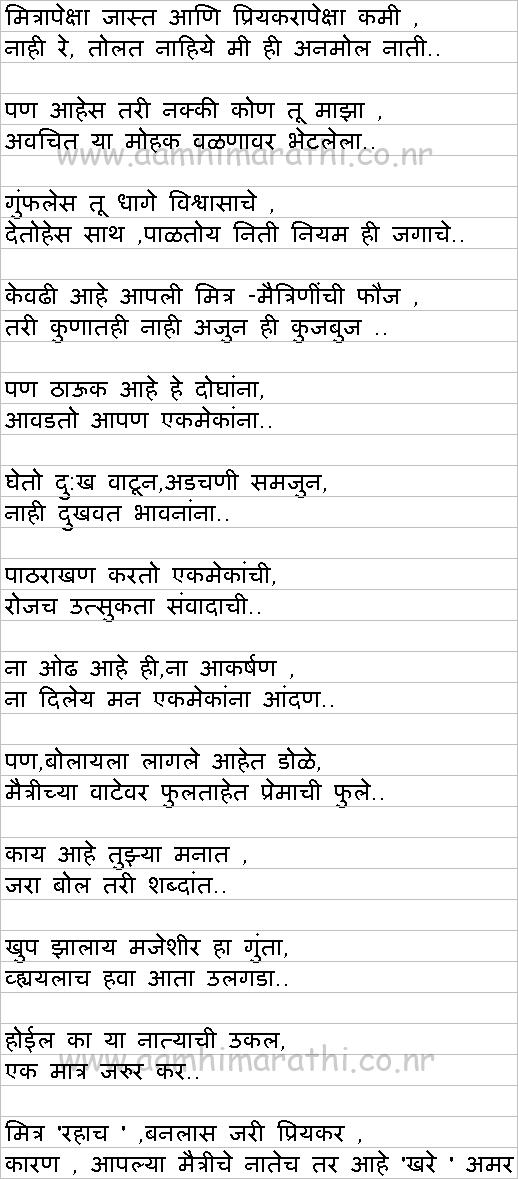 मित्रापेक्षा जास्त आणि प्रियकरापेक्षा कमी ,
नाही रे, तोलत नाहिये मी ही अनमोल नाती..
पण आहेस तरी नक्की कोण तू माझा ,
अवचित या मोहक वळणावर भेटलेला..
www.aamhimarathi.co.nr
गुंफलेस तू धागे विश्वासाचे ,
देतोहेस साथ ,पाळतोय निती नियम ही जगाचे..
केवढी आहे आपली मित्र -मैत्रिणींची फौज ,
तरी कुणातही नाही अजुन ही कुजबुज ..
पण ठाऊक आहे हे दोघांना,
आवडतो आपण एकमेकांना..
घेतो दु:ख वाटून,अडचणी समजुन,
नाही दुखवत भावनांना..
पाठराखण करतो एकमेकांची,
रोजच उत्सुकता संवादाची..
ना ओढ आहे ही,ना आकर्षण ,
ना दिलेय मन एकमेकांना आंदण..
पण,बोलायला लागले आहेत डोळे,
मैत्रीच्या वाटेवर फुलताहेत प्रेमाची फुले..
काय आहे तुझ्या मनात ,
जरा बोल तरी शब्दांत..
खुप झालाय मजेशीर हा गुंता,
व्ह्ययलाच हवा आता उलगडा..
होईल का या नात्याची उकल,
www.aamhimarathi.co.nr
एक मात्र जरुर कर..
मित्र 'रहाच ' ,बनलास जरी प्रियकर ,
कारण , आपल्या मैत्रीचे नातेच तर आहे 'खरे ' अमर